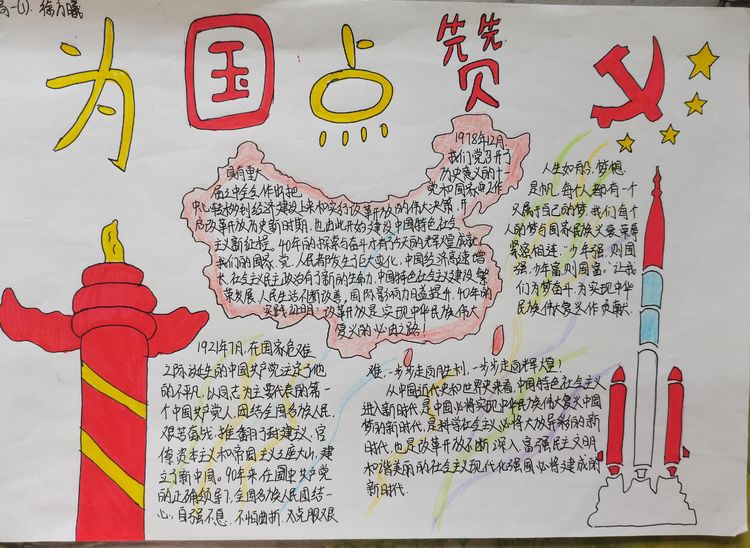 高一(1). 徐
为国点赞
1978年12月,
我们党召开了
具有重大
历史意义的十
一届三中全会作出把
党和国家中工作
中心转移到经济建设上来和实行改革开放的伟大决策,开
启改革开放历史新时期,也由此开始建设中国特色社会
主义新征程。40年的探索与奋斗才有了今天的辉煌成就
我们的国家、党、人民都发生了巨大变化,中国经济高速增
长,社会主义民主政治有了新的生命力,中国特色社会主义建设繁
荣发展,人民生活不断改善,国际影响力日益提升,40年的
实践证明:改革开放是实现中华民族伟大
复兴的必由之路!
人生如船,梦想
是帆,每个人都有一个
属于自己的梦,我们每个
人的梦与国家民族兴衰荣辱
紧密相连."少年强,则国
强,少年富,则国富。"让我
们为梦奋斗,为实现中华
民族伟大复兴作贡献.
1921年7月,在国家危难
之际诞生的中国共产党注定了他
的不平凡,以同志为主要代表的第一
个中国共产党人,团结全国各族人民,
艰苦奋战,推翻了封建主义,官
僚资本主义和帝国主义三座大山,建
立了新中国。90年来,在中国共产党
的正确领导下,全国各族人民团结一
心,自强不息,不怕曲折,克服艰
难,一步步走向胜利,一步步走向辉煌!
从中国近代史和世界史来看,中国特色社会主义
进入新时代,是中国必将实现中华民族伟大复兴中国
梦的新时代,是科学社会主义必将大放异彩的新
时代,也是改革开放不断深入,富强民主文明
和谐美丽的社会主义现代化强国必将建成的
新时代.